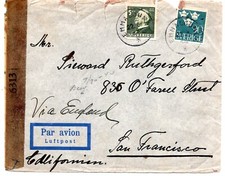 Mr.
Sieward Ruthesford
830 O'Farrel Street
Via England
San Francisco
Californien.
Par avion
Luftpost
6313
SVERIGE